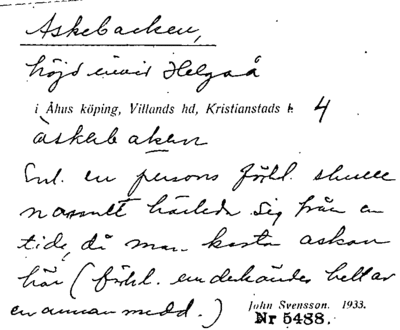 Askebacken,
höjd invid Helgeå
i Åhus köping, Villands hd, Kristianstads l. 4
àskebaken
Enl. en persons förkl. skulle
namnet härleda sig från en
tid, då man kasta askan
här (förkl. underkändes helt av
en annan medd.)
John Svensson. 1933.
Nr 5488.